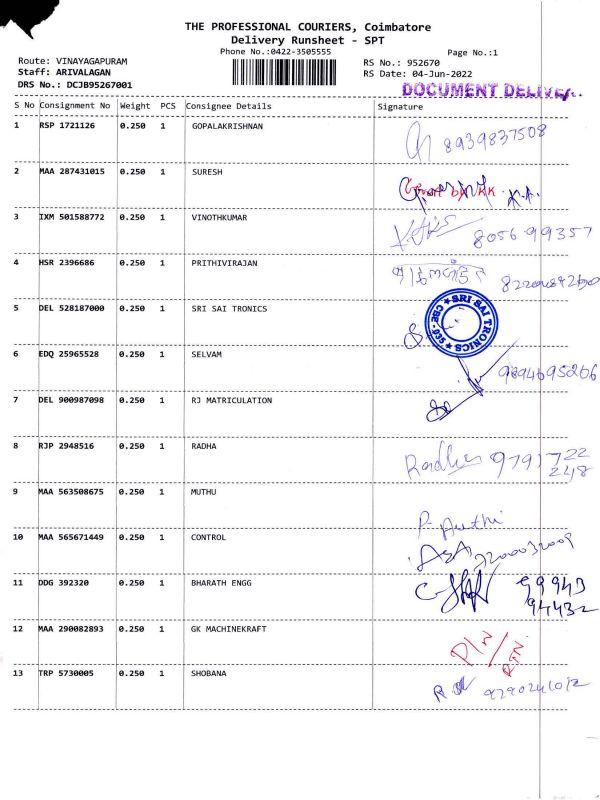 THE PROFESSIONAL COURIERS, Coimbatore
Delivery Runsheet - SPT
Phone No.:0422-3505555
Page No.:1
Route: VINAYAGAPURAM
RS No.: 952670
Staff: ARIVALAGAN
RS Date: 04-Jun-2022
DRS No.: DCJB95267001
DOCUMENT DELIVER.
S No Consignment No Weight PCS Consignee Details Signature
1 RSP 1721126 0.250 1 GOPALAKRISHNAN 8939837508
2 MAA 287431015 0.250 1 SURESH
3 IXM 501588772 0.250 1 VINOTHKUMAR 8056 99357
4 HSR 2396686 0.250 1 PRITHIVIRAJAN
5 DEL 528187000 0.250 1 SRI SAI TRONICS SRI SAI TRONICS CBE - 035
6 EDQ 25965528 0.250 1 SELVAM 9894695266
7 DEL 900987098 0.250 1 RJ MATRICULATION
8 RJP 2948516 0.250 1 RADHA Radha 9791722
248
9 MAA 563508675 0.250 1 MUTHU
10 MAA 565671449 0.250 1 CONTROL
11 DDG 392320 0.250 1 BHARATH ENGG 99943
94432
12 MAA 290082893 0.250 1 GK MACHINEKRAFT
13 TRP 5730005 0.250 1 SHOBANA